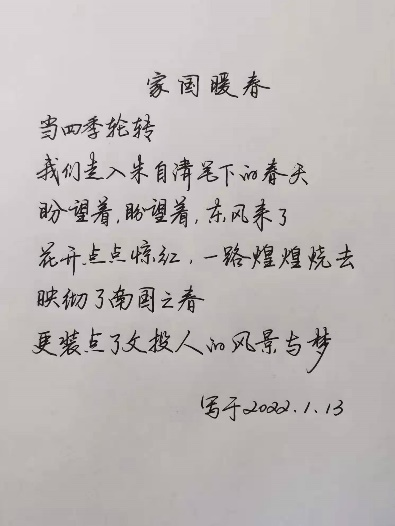 家国暖春
当四季轮转
我们走入朱自清笔下的春天
盼望着,盼望着,东风来了
花开点点惊红,一路煌煌烧去
映彻了南国之春
更装点了文投人的风景与梦
写于2022.1.13